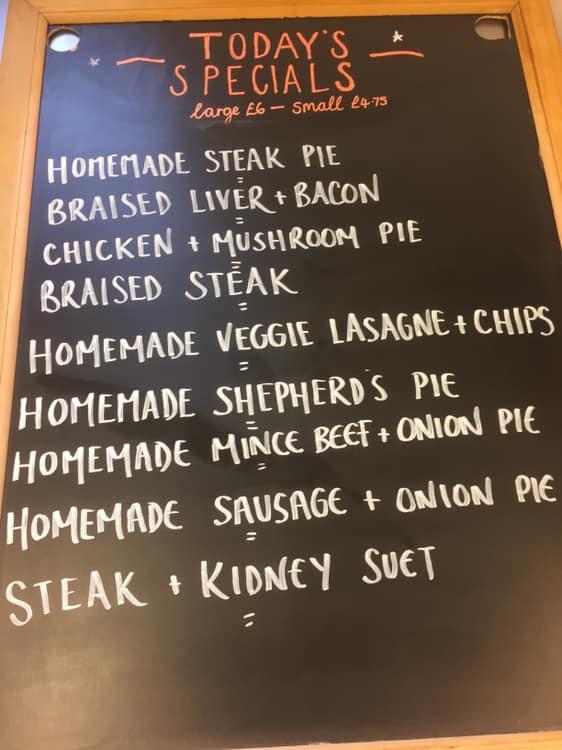 TODAY'S
SPECIALS
large £6 – small £4.75
HOMEMADE STEAK PIE
BRAISED LIVER + BACON
CHICKEN + MUSHROOM PIE
BRAISED STEAK
HOMEMADE VEGGIE LASAGNE + CHIPS
HOMEMADE SHEPHERD'S PIE
HOMEMADE MINCE BEEF + ONION PIE
HOMEMADE SAUSAGE + ONION PIE
STEAK + KIDNEY SUET